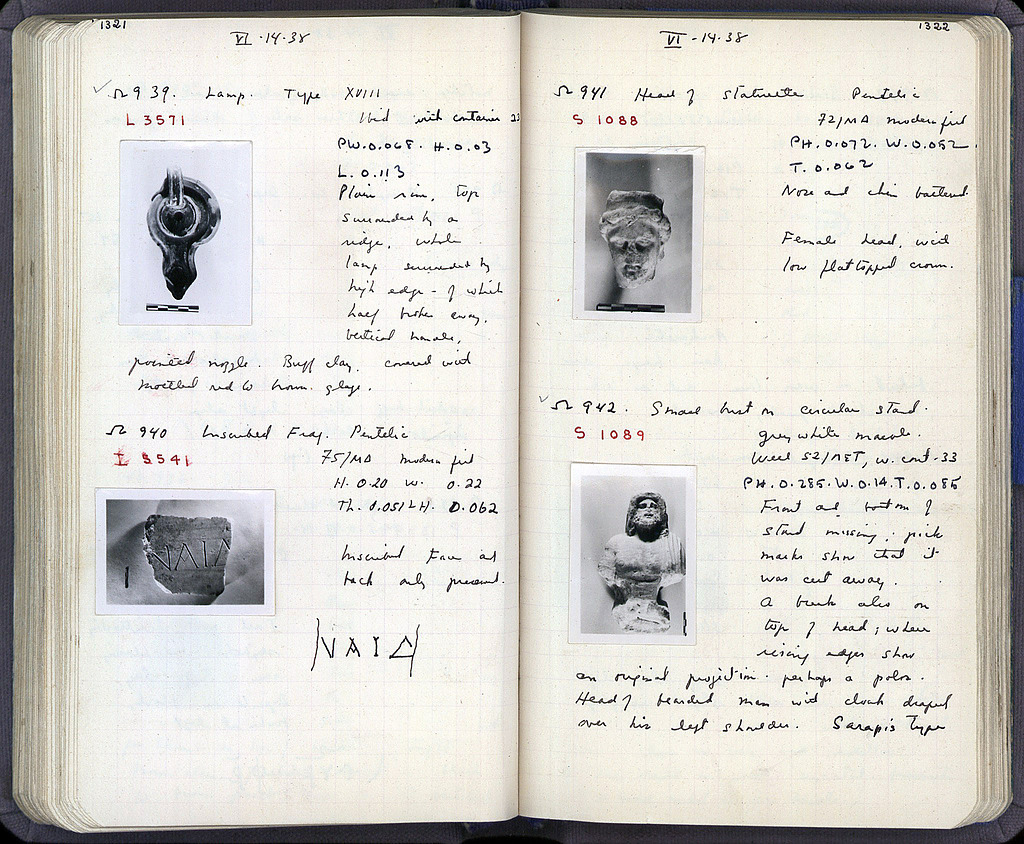 1321
VI -14-38
Ω 939. Lamp. Type XVIII
L 3571
Ibid with container 23
PW. 0.068. H. 0.03
L. 0.113
Plain rim, top
surrounded by a
ridge, whole
lamp surrounded by
high edge - of which
half broken away.
Vertical handle,
pointed nozzle. Buff clay. covered with
mottled red to brown glaze.
Ω 940 Inscribed Frag. Pentelic
I 5541
75/MA modern fill
H. 0.20 W. 0.22
Th. 0.051 LH. 0.062
Inscribed Face and
back only preserved.
VAIΔ
1322
VI -14-38
Ω 941 Head of statuette Pentelic
S 1088
72/MA modern fill
PH. 0.072. W. 0.052
T. 0.062
Nose and chin battered
Female head, with
low flat topped crown.
Ω 942. Small bust on circular stand.
S 1089
grey white marble.
Well 52/ , w. cont. 33
PH. 0.285. W. 0.14. T. 0.085
Front and bottom of
stand missing; pick
marks show that it
was cut away.
A break also on
top of head; where
rising edges show
an original projection. perhaps a polos.
Head of bearded man with cloak draped
over his left shoulder. Sarapis Type